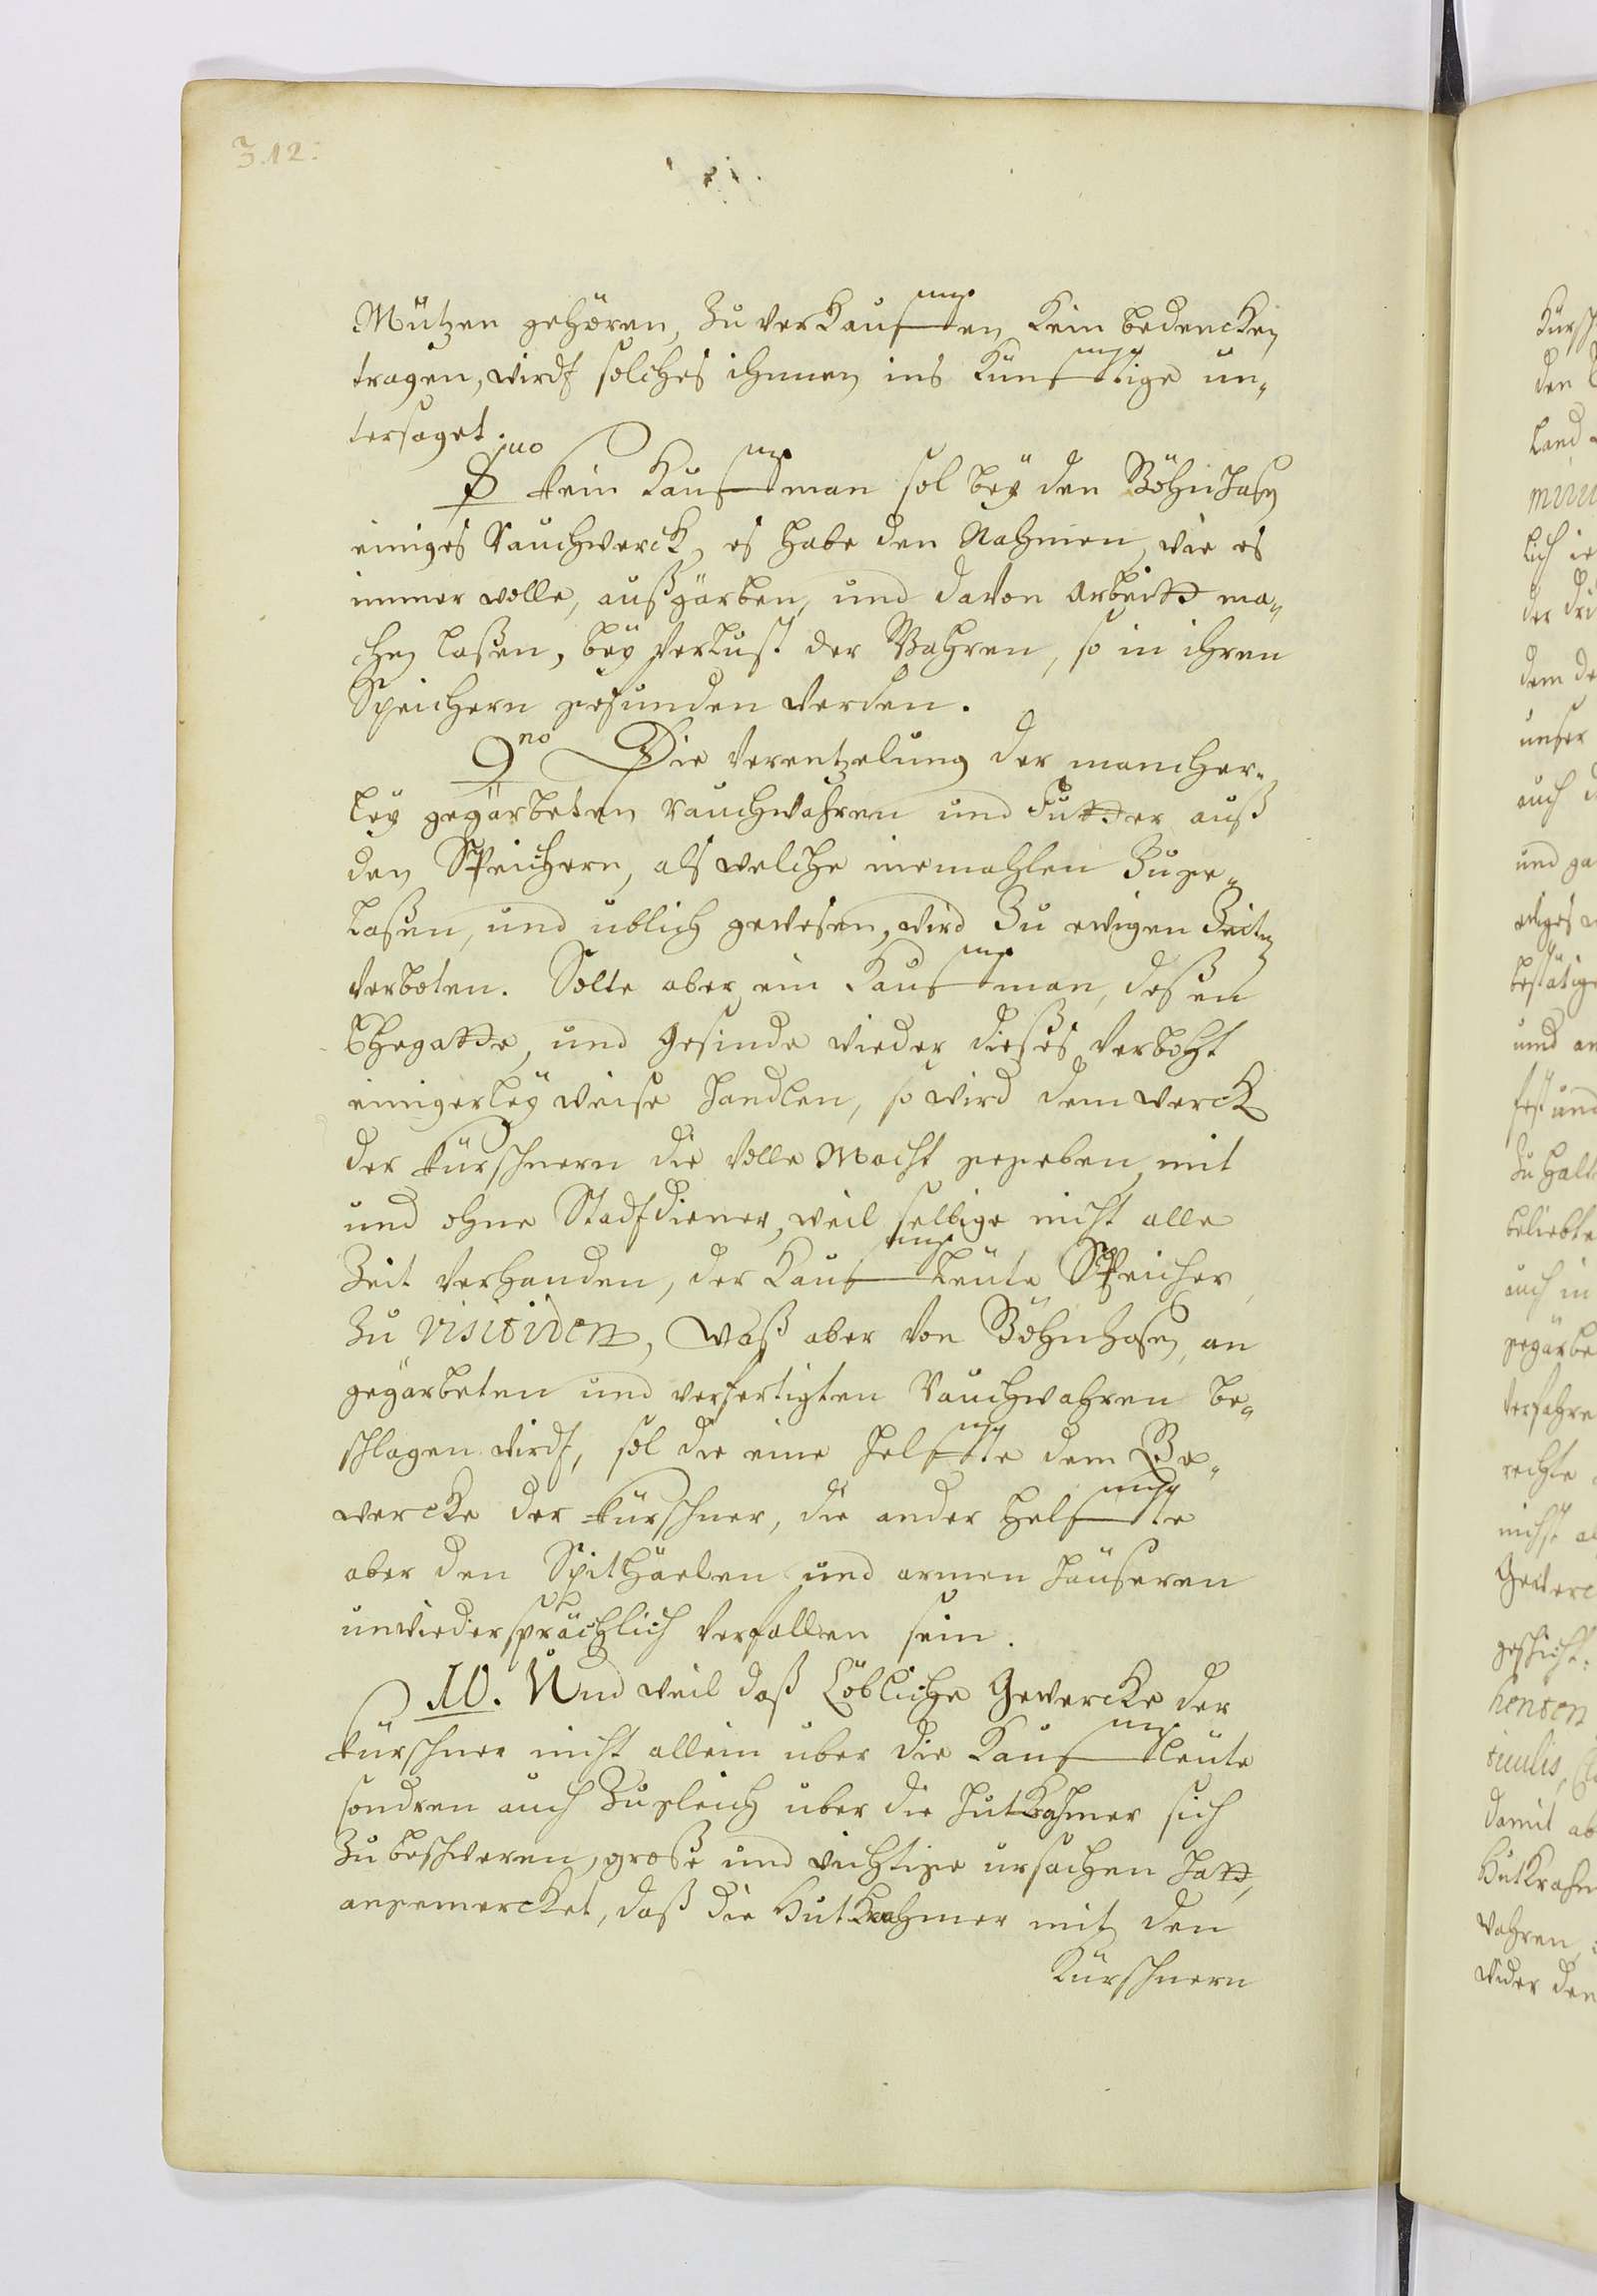 312:
Mützen gehören, Zu verkauffen, kein bedencken
tragen, wirdt solches ihnnen ins künfftige un„
tersaget.
8vo Kein Kauffman sol beÿ den Böhnhasen
einiges Rauchwerck, es habe den Nahmen, wie es
immer wolle, außgärben, und davon Arbeitt ma„
chen laßen, beÿ Verlust der Wahren, so in ihren
Speichern gefunden werden.
9no Die Verentzelung der mancher„
leÿ gegärbeten rauchwahren und Futter auß
den Speichern, als welche niemahlen Zuge„
laßen, und üblich gewesen, wird Zu ewigen Zeiten
verboten. Solte aber ein Kauffman, deßen
Ehegatte, und Gesinde wieder dießes Verboht
einigerleÿ weise handlen, so wird dem werck
der Kürschnern die Volle Macht gegeben, mit
und ohne Stadtdiener, weil selbige nicht alle
Zeit Verhanden, der Kauffleute Speicher
Zu visitiren, Waß aber von Böhnhasen, an
gegärbeten und verfertigten Rauchwahren be„
schlagen wirdt, sol die eine Helffte dem Ge„
wercke der Kürschner, die ander Helffte
aber den Spithäelen und armen Häuseren
unwiedersprächlich Verfallen sein.
10. Und weil daß Löbliche Gewercke der
Kürschner nicht allein über die Kauffleute
sondren auch Zugleich über die Hutkrahmer sich
Zu beschweren, große und wichtige ursachen hatt,
angemercket, daß die Hutkrahmer mit den
Kürschnern